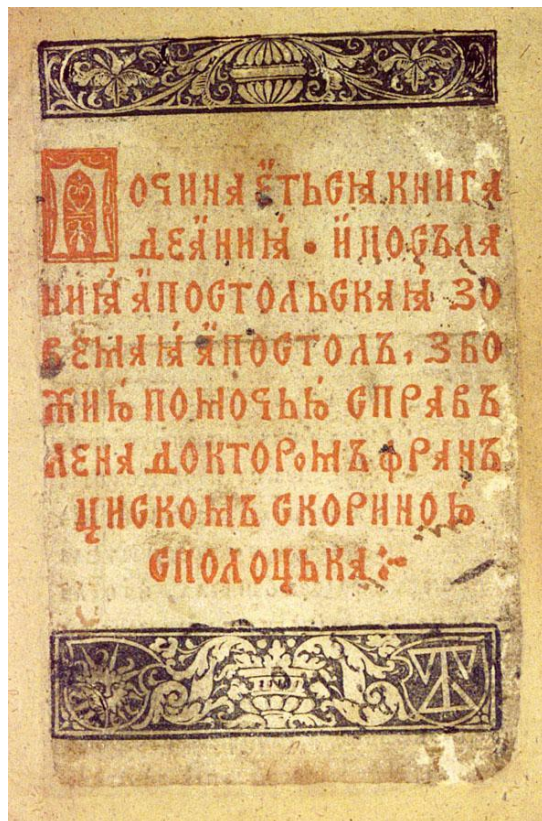 Починаѐтьсꙗ книга
деꙗ̈ниꙗ́ · и̋посъла
ниꙗ́ а̋постольскаꙗ зо
вемаꙗ́ а̋постолъ, збо
жиею́ помочью́ справъ
лена докторомъ франъ
цискомъ скориною́
сполоцька:~